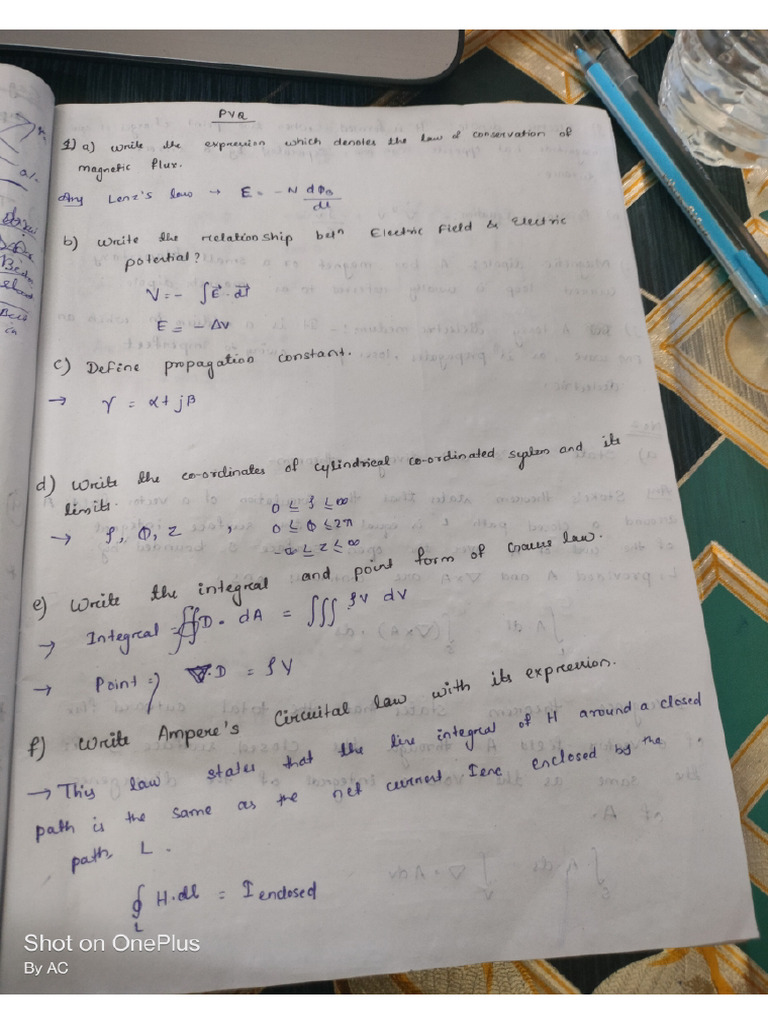 PVQ
1) a) Write the expression which denotes the law of conservation of
magnetic flux.
Any Lenz's law → E = -N dΦB/dt
b) Write the relationship betn Electric Field & Electric
potential?
V = - ∫ E⃗ · dl⃗
E = - ΔV
c) Define propagation constant.
→ γ = α + jβ
d) Write the co-ordinates of cylindrical co-ordinated system and its
limits.
→ ρ, Φ, Z , 0 ≤ ρ ≤ ∞
0 ≤ Φ ≤ 2π
-∞ ≤ z ≤ ∞
e) Write the integral and point form of Gauss law.
→ Integral = ∯ D · dA = ∭ ρV dV
→ Point => ∇·D = ρV
f) Write Ampere's Circuital law with its expression.
→ This law states that the line integral of H around a closed
path is the same as the net current Ienc enclosed by the
path L.
∮L H·dl = I enclosed
Shot on OnePlus
By AC